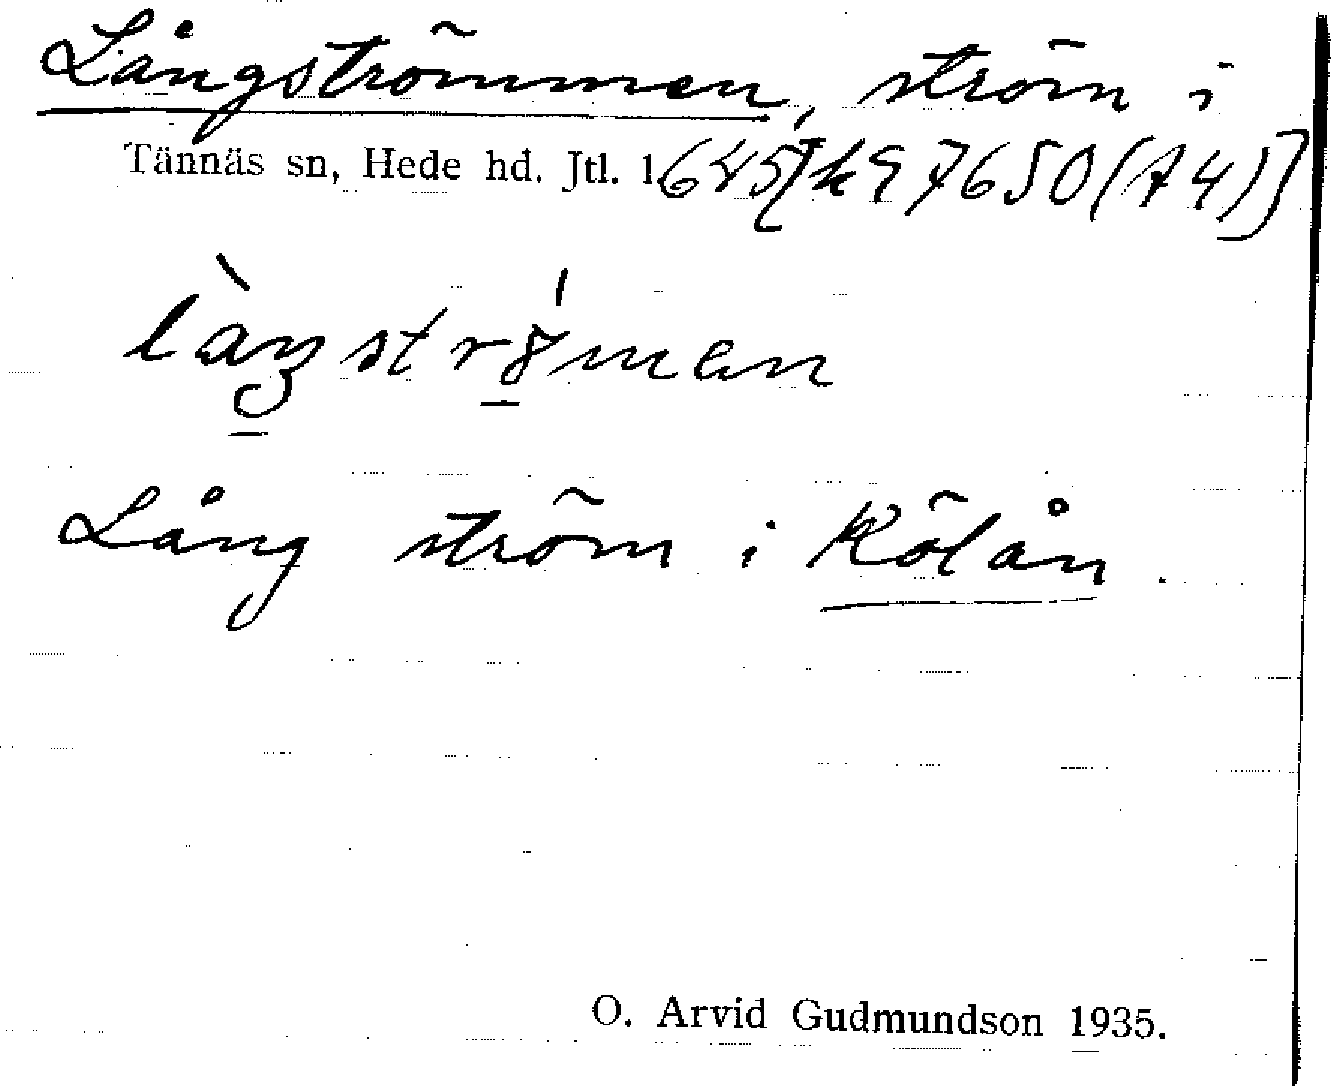 Långströmmen, ström i
Tännäs sn, Hede hd. Jtl. l. 645 [k 97650 (A4)]
Lång ström i Kölån.
O. Arvid Gudmundson 1935.